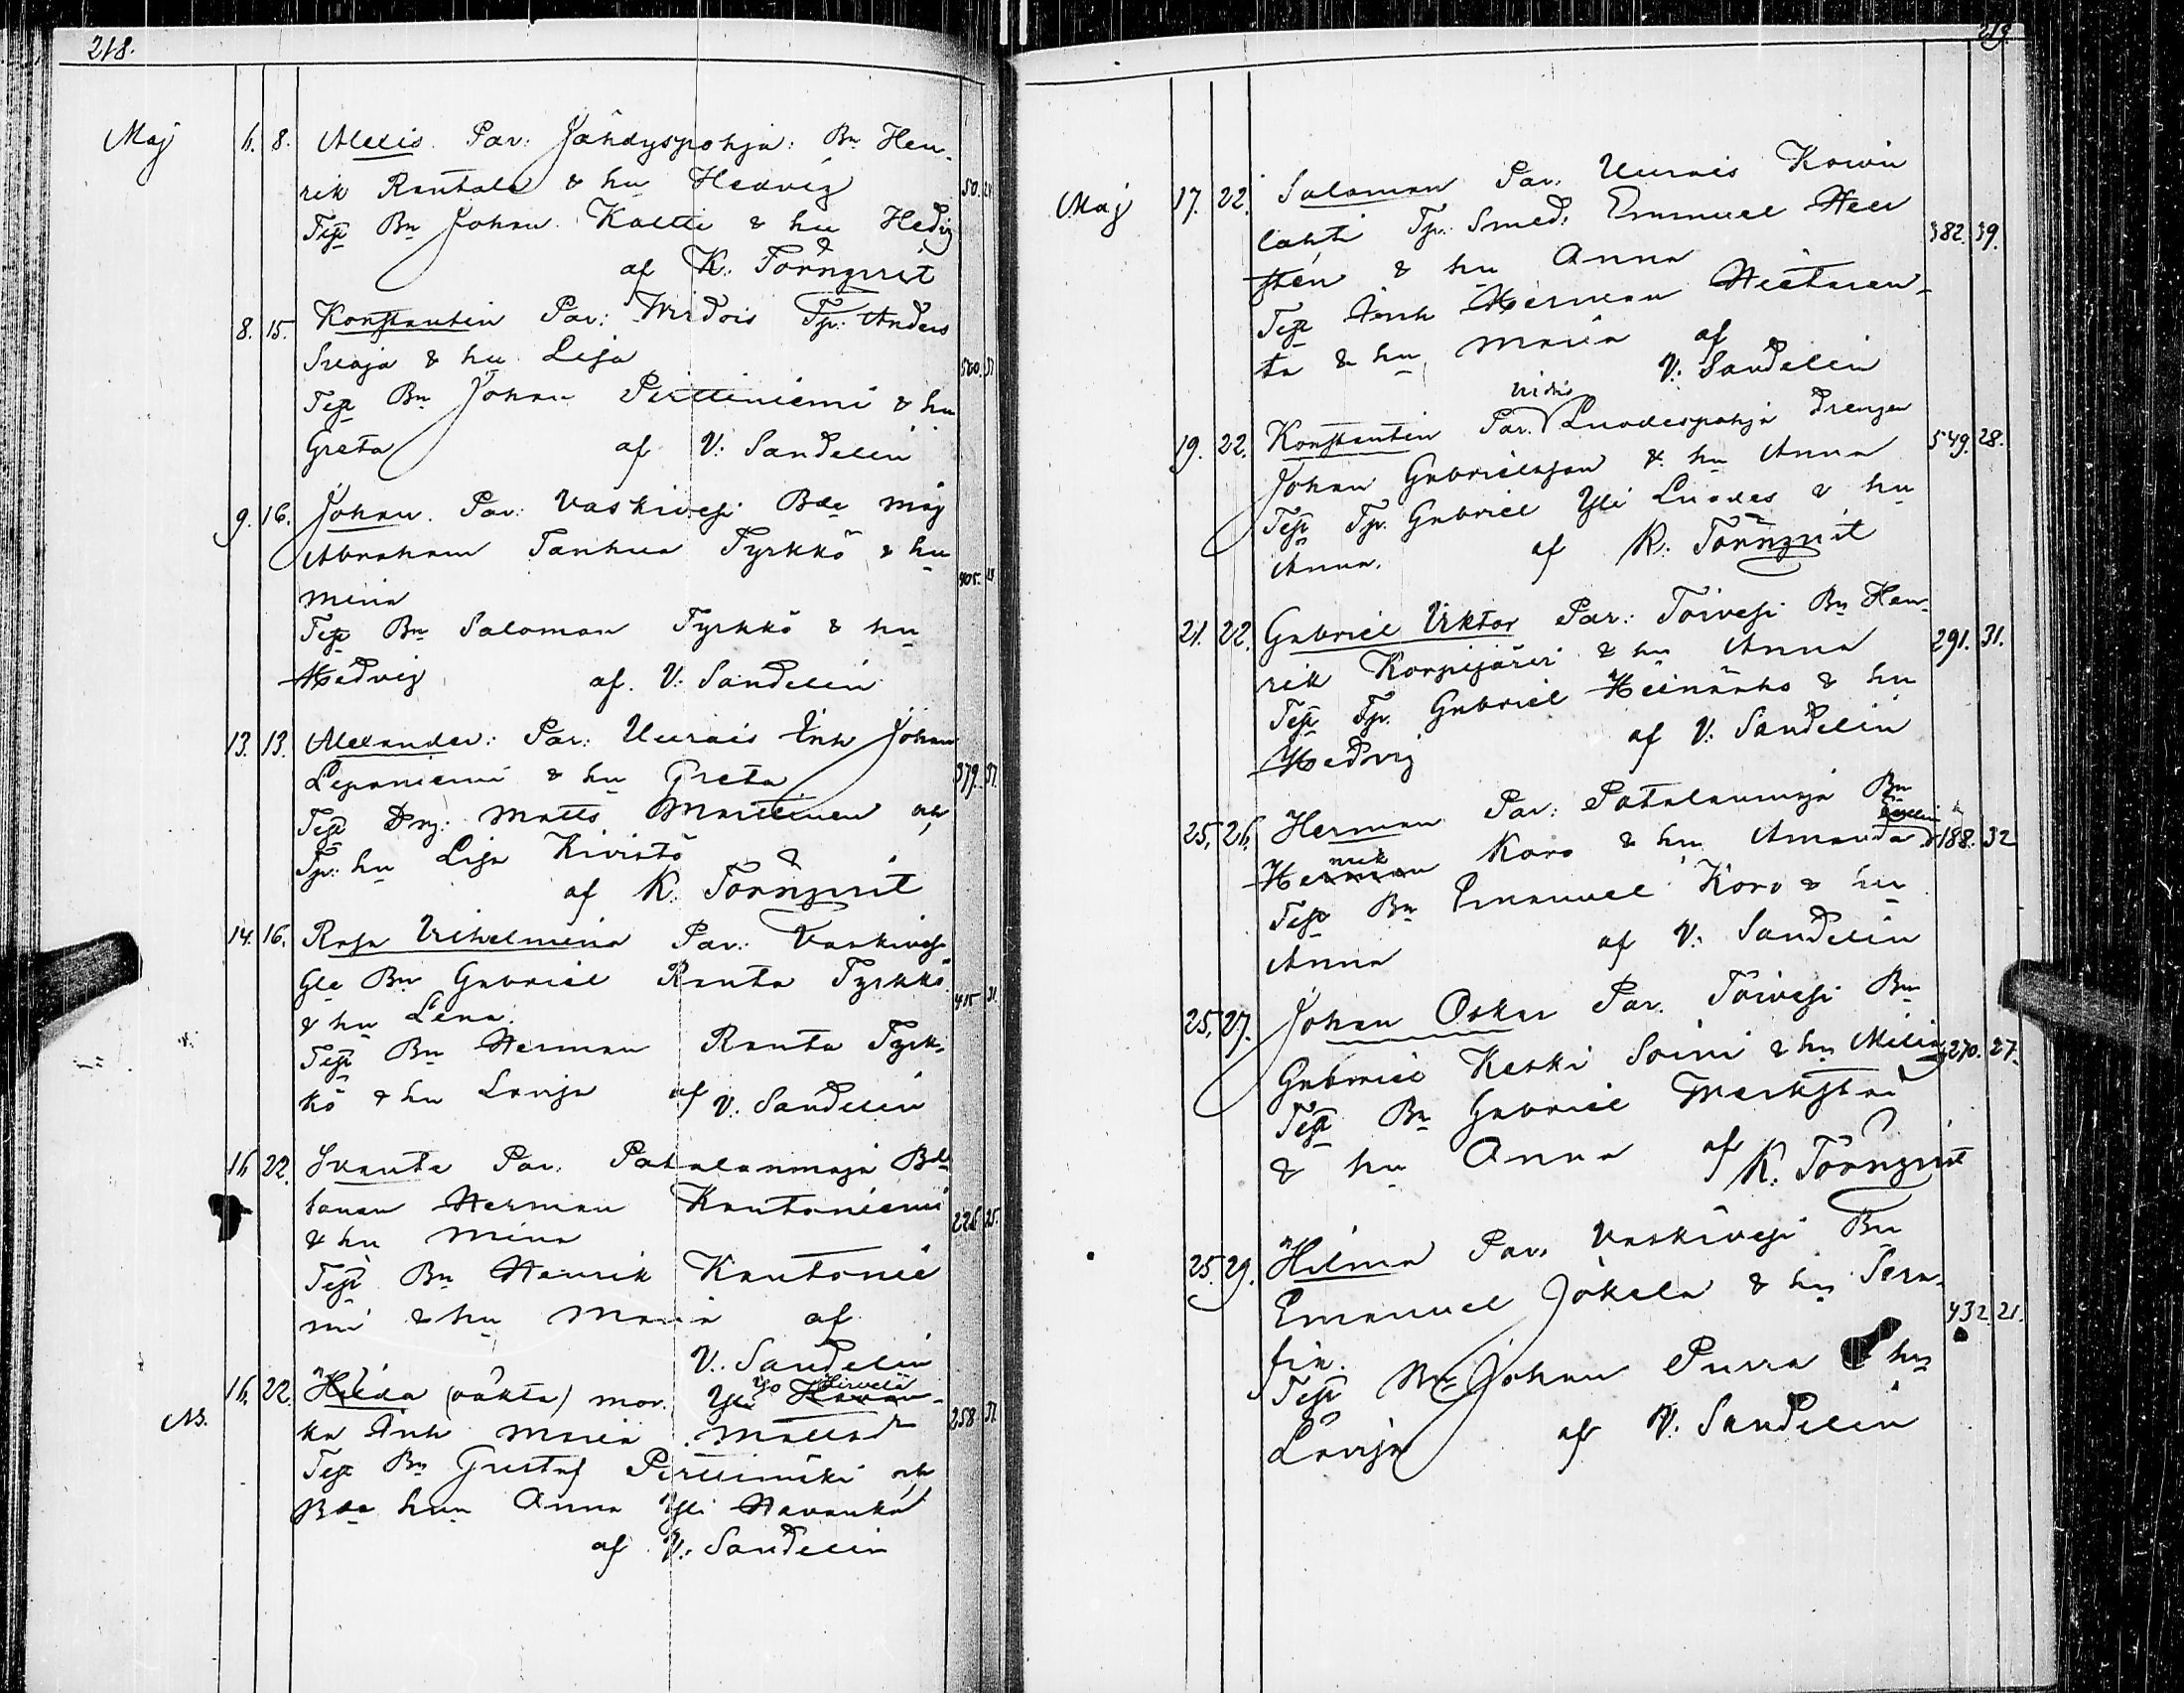 218.
Maj 6. 8. Alexis. Par: Jähdyspohja: Bn Hen-
rik Rantala & hu Hedvig 50.
Test Bn Johan Kaltti & hu Hedvig
af K: Törnqvist
8. 15. Konstantin Par: Wirdois Tp: Anders
& hu Lisa 560.
Test Bn Johan Pittiniemi & hu
Greta af V: Sandelin
9. 16. Johan. Par: Vaskivesi Bde måg
Abraham Tanhua Tyrkkö & hu 405.
Mina
Test Bn Saloman Tyrkkö & hu
Hedvig af. V: Sandelin
13. 13. Alexander: Par: Uurais Inh Johan
Lepaniemi & hu Greta 379. 37.
Test Drg: Matts Martinen och
Tp: hu Lisa Kivistö
af K. Törnqvist
14. 16. Rosa Vilhelmina Par: Vaskivesi
Gla Bn Gabriel Ranta Tyrkkö 415 31.
& hu Lena.
Test Bn Herman Ranta Tyrk-
kö & hu Lovisa af V: Sandelin
16 22. Svante Par. Patalanmaja Bde
sonen Herman Kautoniemi 226 25.
& hu Mina
Test Bn Henrik Kautonie
mi & hu Maria af
V. Sandelin
16. 22. Hilda (oäkta) mor. Yli Yö Hirvelä Havan-
NB. ka Inh Maria Mattsdr 258 31.
Test Bn Gustaf och
Bde hun Anna Yli Havanka
af V: Sandelin
219
Maj 17. 22. Saloman Par. Uurais Koivu
lahti Tp: Smed: Emanuel Hell 382. 39.
stén & hu Anna
Test Inh Herman Hietaran-
ta & hu Maria af
V: Sandelin
Virdois
19. 22. Konstantin Par. Luodespohja Drengen
Johan Gabrielsson & hu Anna 549. 28.
Test Tp. Gabriel Yli Luodes & hu
Anna. af K: Törnqvist
21. 22. Gabriel Viktor Par: Toivesi Bn Hen-
rik Korpijärvi & hu Anna 291. 31.
Test Tp. Gabriel Heinäaho & hu
Hedvig af V: Sandelin
25. 26. Herman Par: Patalanmaja Bn
Herman rik Koro & hu Amanda 188. 32
Test Bn Emanuel Koro & hu
Anna af V: Sandelin
25. 27. Johan Oskar Par. Toivesi Bn
Gabriel Keski Soini & hu Milia 270. 27.
Test Bn Gabriel
& hu Anna af K. Törnqvist
25. 29. Hilma Par. Vaskivesi Bn
Emanuel Jokela & hu Sera- 432 21.
fia.
Test Bn Johan Purra & hu
Lovisa af V: Sandelin